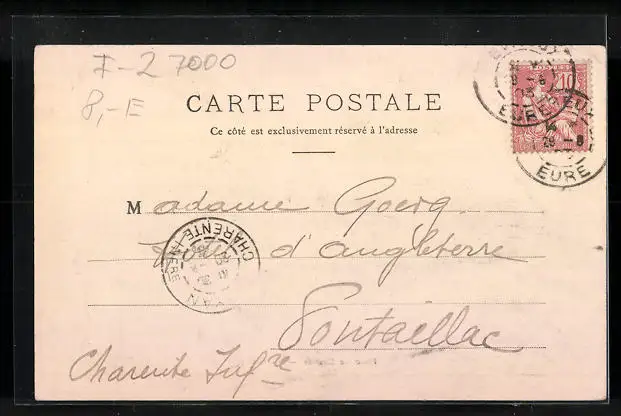 F-27000
8,-E
CARTE POSTALE
Ce côté est exclusivement réservé à l'adresse
10
EURE
EURE
Madame Goerg
d'angleterre
CHARENTE-INFRE
Pontaillac
Charente Infre